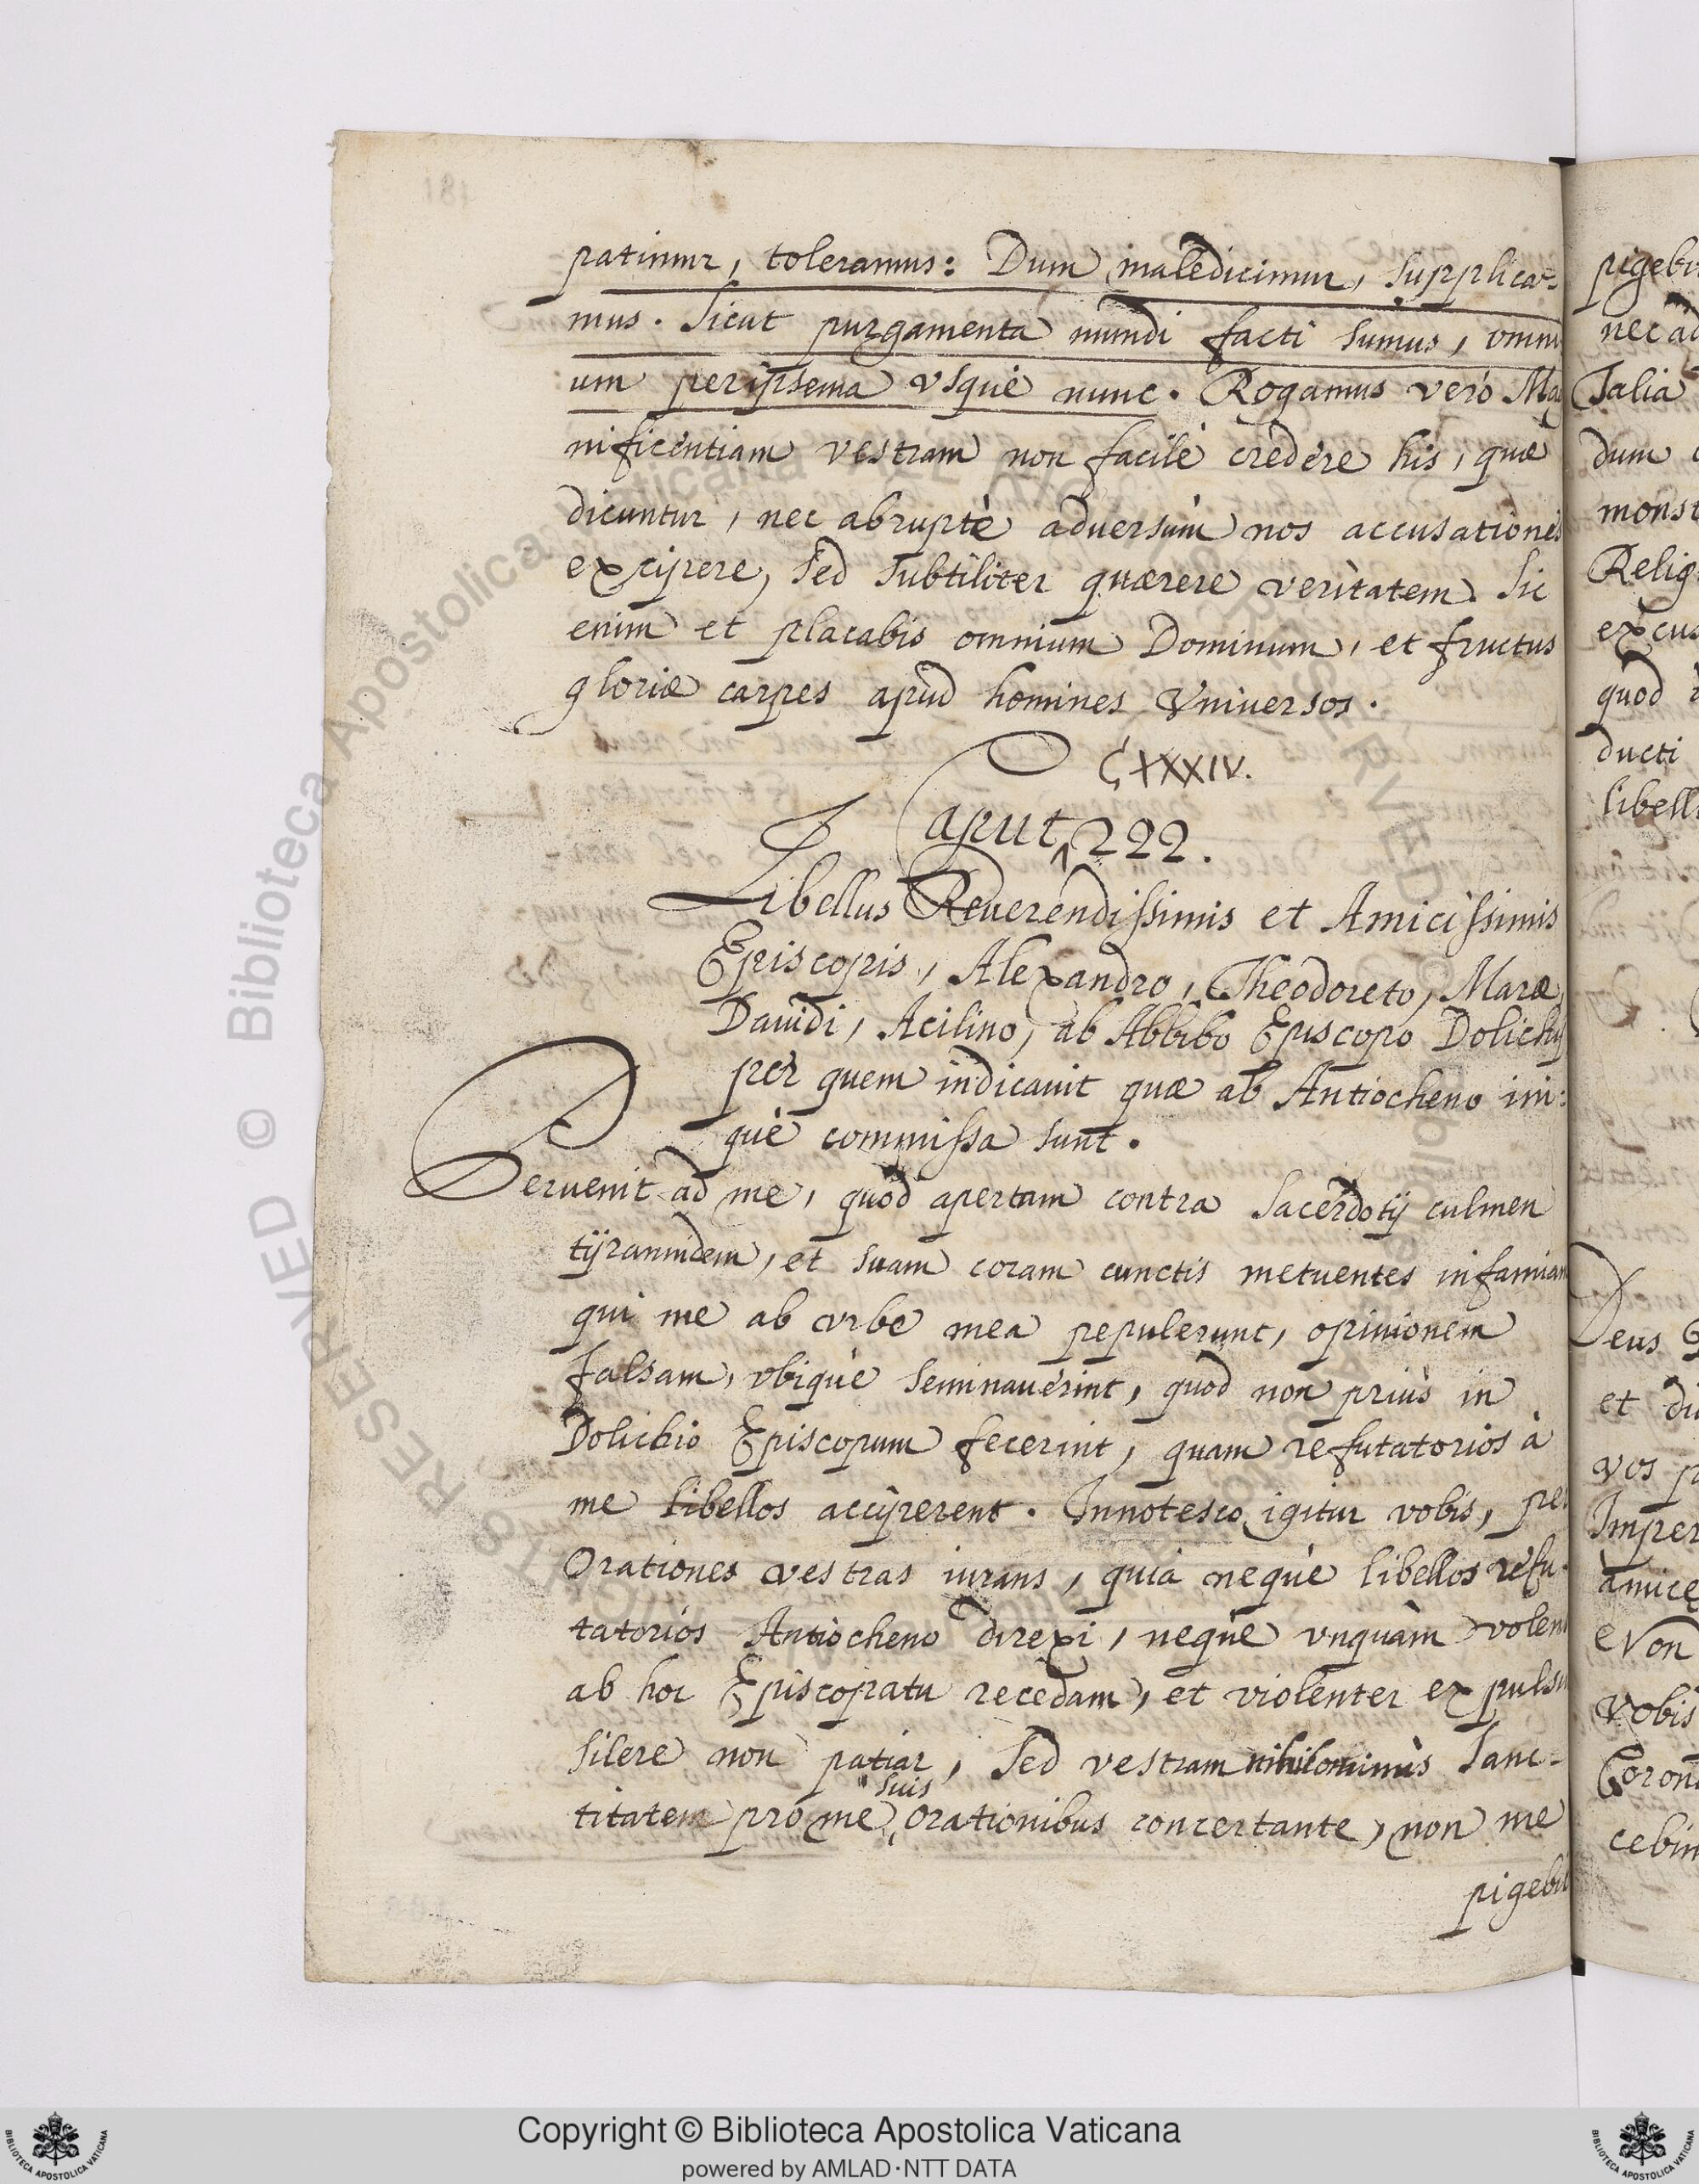 181
patimur, toleramus: Dum maledicimur, supplica-
mus. Sicut purgamenta mundi facti sumus, omni
um peripsema vsquè nunc. Rogamus verò Mag
nificentiam vestram non facilè credere his, quæ
dicuntur, nec abruptè aduersùm nos accusationes
excipere, sed subtiliter quærere veritatem. Sic
enim et placabis omnium Dominum, et fructus
gloriæ carpes apud homines Vniuersos.
CXXXIV.
Caput 222.
Libellus Reuerendissimis et Amicissimis
Episcopis, Alexandro, Theodoreto, Maræ,
Dauidi, Acilino, ab Abbibo Episcopo Dolichij
per quem indicauit quæ ab Antiocheno ini:
què commissa sunt.
Peruenit ad me, quòd apertam contra Sacerdotij culmen
tijrannidem, et suam coram cunctis metuentes infamiam
qui me ab vrbe mea pepulerunt, opinionem
falsam, vbiquè seminauerint, quod non priùs in
Dolichio Episcopum fecerint, quam refutatorios à
me libellos acciperent. Innotesco igitur vobis, per
Orationes vestras iurans, quià nequè libellos refu-
tatorios Antiocheno direxi, nequè vnquàm volens
ab hoc Episcopatu recedam, et violenter expulsu
silere non patiar, Sed vestram nihilominùs Sanc-
suis
titatem pro me orationibus concertante, non me
pigebit
pigebi
nec ad
Talia
dum
monst
Relig
excus
quod
ducti
libell
Deus
et di
vos p
Imper
amice
Non
Vobis
Coron
cebim
RESERVED © Biblioteca Apostolica Vaticana
Copyright © Biblioteca Apostolica Vaticana
powered by AMLAD·NTT DATA
BIBLIOTECA APOSTOLICA VATICANA
BIBLIOTECA APOSTOLICA VATICANA